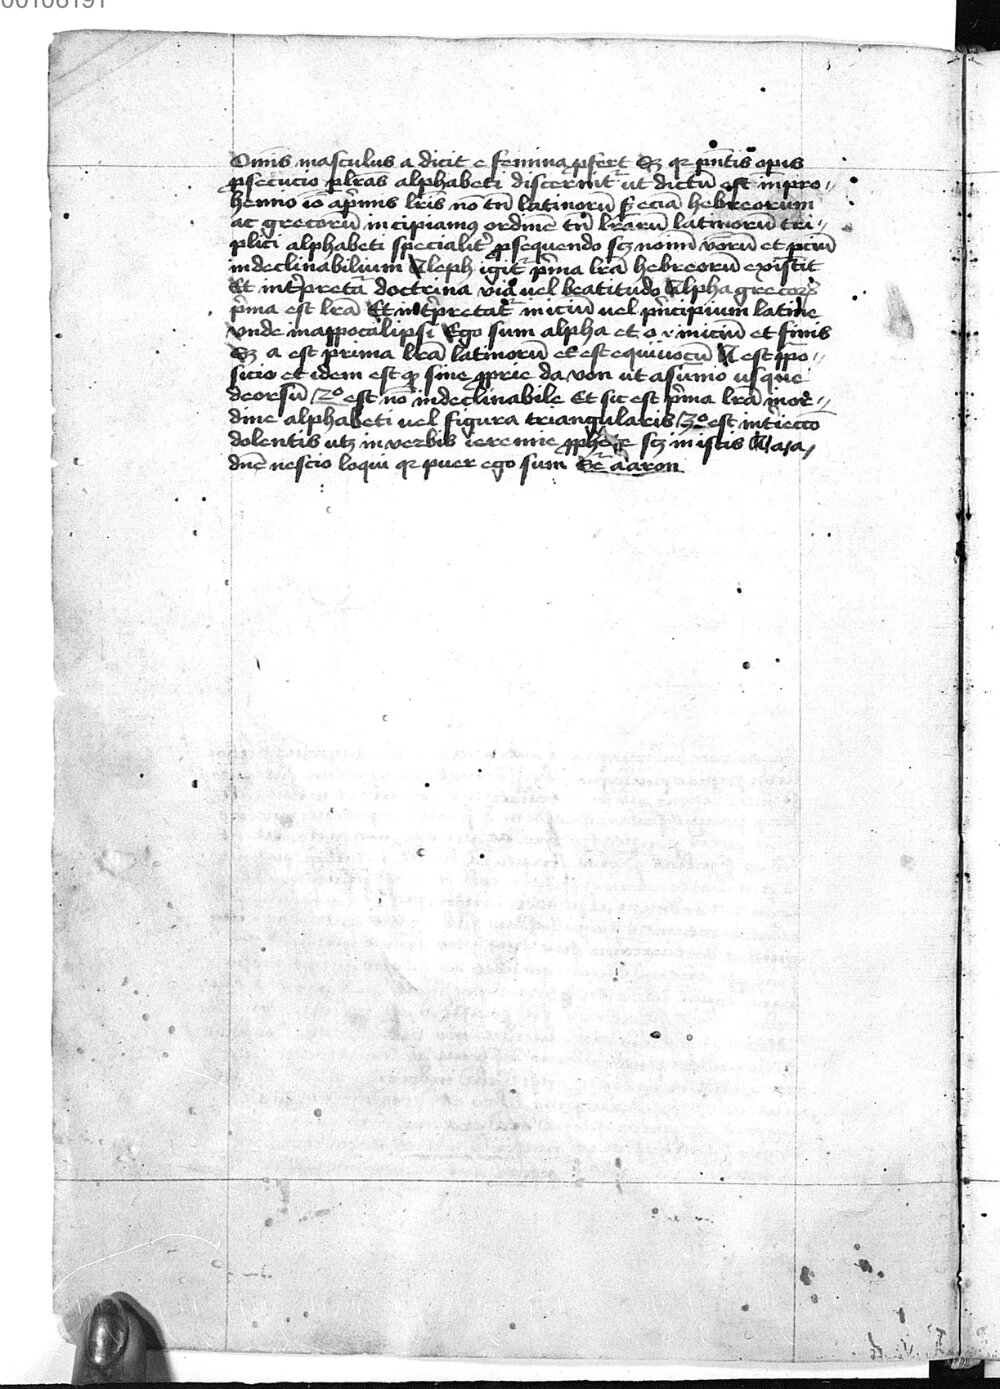 00106191
Omis masculus a dicit e femina ꝓfert Sꝫ qꝛ pn̄tis opus
ꝓsecucio pl̄ras alphabeti discernit᷑ ut dictū est in pro⸗
hennio iō a pmis lr̄is nō tm̄ latinorū sꝫ eciā hebreorum
ac grecorū incipiamꝰ ordinē tn̄ lr̄arū latinorū tri⸗
plici alphabeti specialit᷑ ꝓsequendo scꝫ noīm vōrū et
indeclinabilium Aleph igit᷑ p̄ma lr̄a hebreorū existit
Et int̄pretat᷑ doctrina via uel beatitudo Alpha grecoꝝ
p̄ma est lr̄a Et int̄pretat᷑ iniciū uel p̄ncipium latine
vnde in appocalipsi Ego sum alpha et o iniciū et finis
Sꝫ a est prima lr̄a latinorū et est equiuocū A est ꝓpo⸗
sicio et idem est qꝫ sine ꝓprie da von ut a sūmo usque
deorsū 2º est nō indeclinabile Et sic est p̄ma lr̄a in or⸗
dine alphabeti uel figura triangularis 3º est int̄iectō
dolentis utꝫ in verbis ieremie ꝓphete scꝫ in istis A a a
dn̄e nescio loqui qꝛ puer ego sum Et̄ aaron